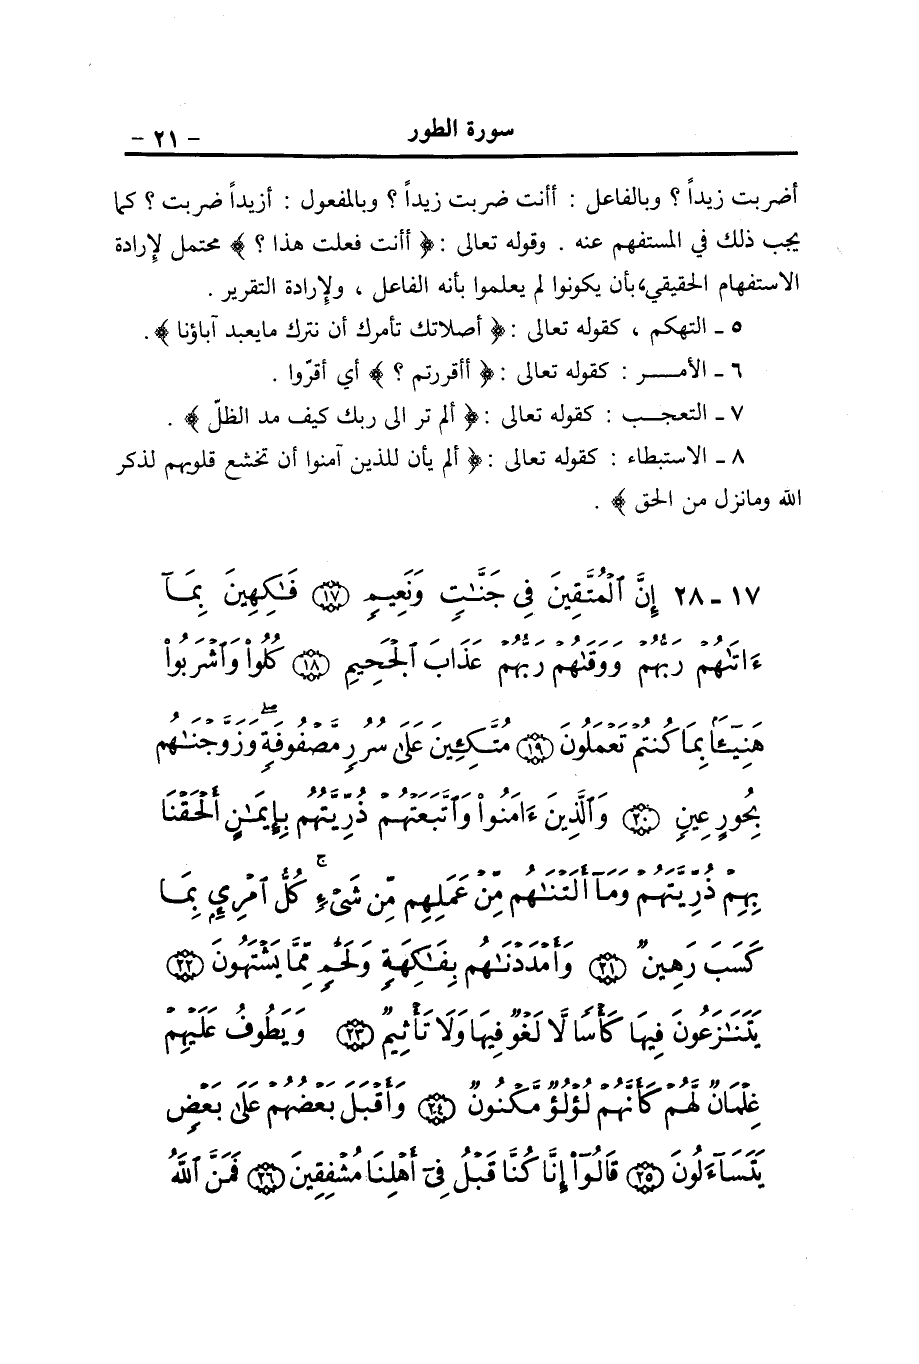 سورة الطور
- ٢١ -
أضربت زيداً ؟ وبالفاعل : أأنت ضربت زيداً ؟ وبالمفعول : أزيداً ضربت ؟ كما
يجب ذلك في المستفهم عنه . وقوله تعالى : ﴿ أأنت فعلت هذا ؟ ﴾ محتمل لإرادة
الاستفهام الحقيقي، بأن يكونوا لم يعلموا بأنه الفاعل ، ولإرادة التقرير .
٥ ـ التهكم ، كقوله تعالى : ﴿ أصلاتك تأمرك أن نترك مايعبد آباؤنا ﴾ .
٦ ـ الأمـــر : كقوله تعالى : ﴿ أأقررتم ؟ ﴾ أي أقرّوا .
٧ ـ التعجـب : كقوله تعالى : ﴿ ألم تر الى ربك كيف مد الظلّ ﴾ .
٨ ـ الاستبطاء : كقوله تعالى : ﴿ ألم يأن للذين آمنوا أن تخشع قلوبهم لذكر
الله ومانزل من الحق ﴾ .
١٧ ـ ٢٨ إِنَّ ٱلْمُتَّقِينَ فِى جَنَّٰتٍ وَنَعِيمٍ ﴿١٧﴾ فَٰكِهِينَ بِمَآ
ءَاتَىٰهُمْ رَبُّهُمْ وَوَقَىٰهُمْ رَبُّهُمْ عَذَابَ ٱلْجَحِيمِ ﴿١٨﴾ كُلُوا۟ وَٱشْرَبُوا۟
هَنِيٓـًٔۢا بِمَا كُنتُمْ تَعْمَلُونَ ﴿١٩﴾ مُتَّكِـِٔينَ عَلَىٰ سُرُرٍ مَّصْفُوفَةٍ ۖ وَزَوَّجْنَٰهُم
بِحُورٍ عِينٍ ﴿٢٠﴾ وَٱلَّذِينَ ءَامَنُوا۟ وَٱتَّبَعَتْهُمْ ذُرِّيَّتُهُم بِإِيمَٰنٍ أَلْحَقْنَا
بِهِمْ ذُرِّيَّتَهُمْ وَمَآ أَلَتْنَٰهُم مِّنْ عَمَلِهِم مِّن شَىْءٍ ۚ كُلُّ ٱمْرِئٍۭ بِمَا
كَسَبَ رَهِينٌ ﴿٢١﴾ وَأَمْدَدْنَٰهُم بِفَٰكِهَةٍ وَلَحْمٍ مِّمَّا يَشْتَهُونَ ﴿٢٢﴾
يَتَنَٰزَعُونَ فِيهَا كَأْسًا لَّا لَغْوٌ فِيهَا وَلَا تَأْثِيمٌ ﴿٢٣﴾ وَيَطُوفُ عَلَيْهِمْ
غِلْمَانٌ لَّهُمْ كَأَنَّهُمْ لُؤْلُؤٌ مَّكْنُونٌ ﴿٢٤﴾ وَأَقْبَلَ بَعْضُهُمْ عَلَىٰ بَعْضٍ
يَتَسَآءَلُونَ ﴿٢٥﴾ قَالُوٓا۟ إِنَّا كُنَّا قَبْلُ فِىٓ أَهْلِنَا مُشْفِقِينَ ﴿٢٦﴾ فَمَنَّ ٱللَّهُ